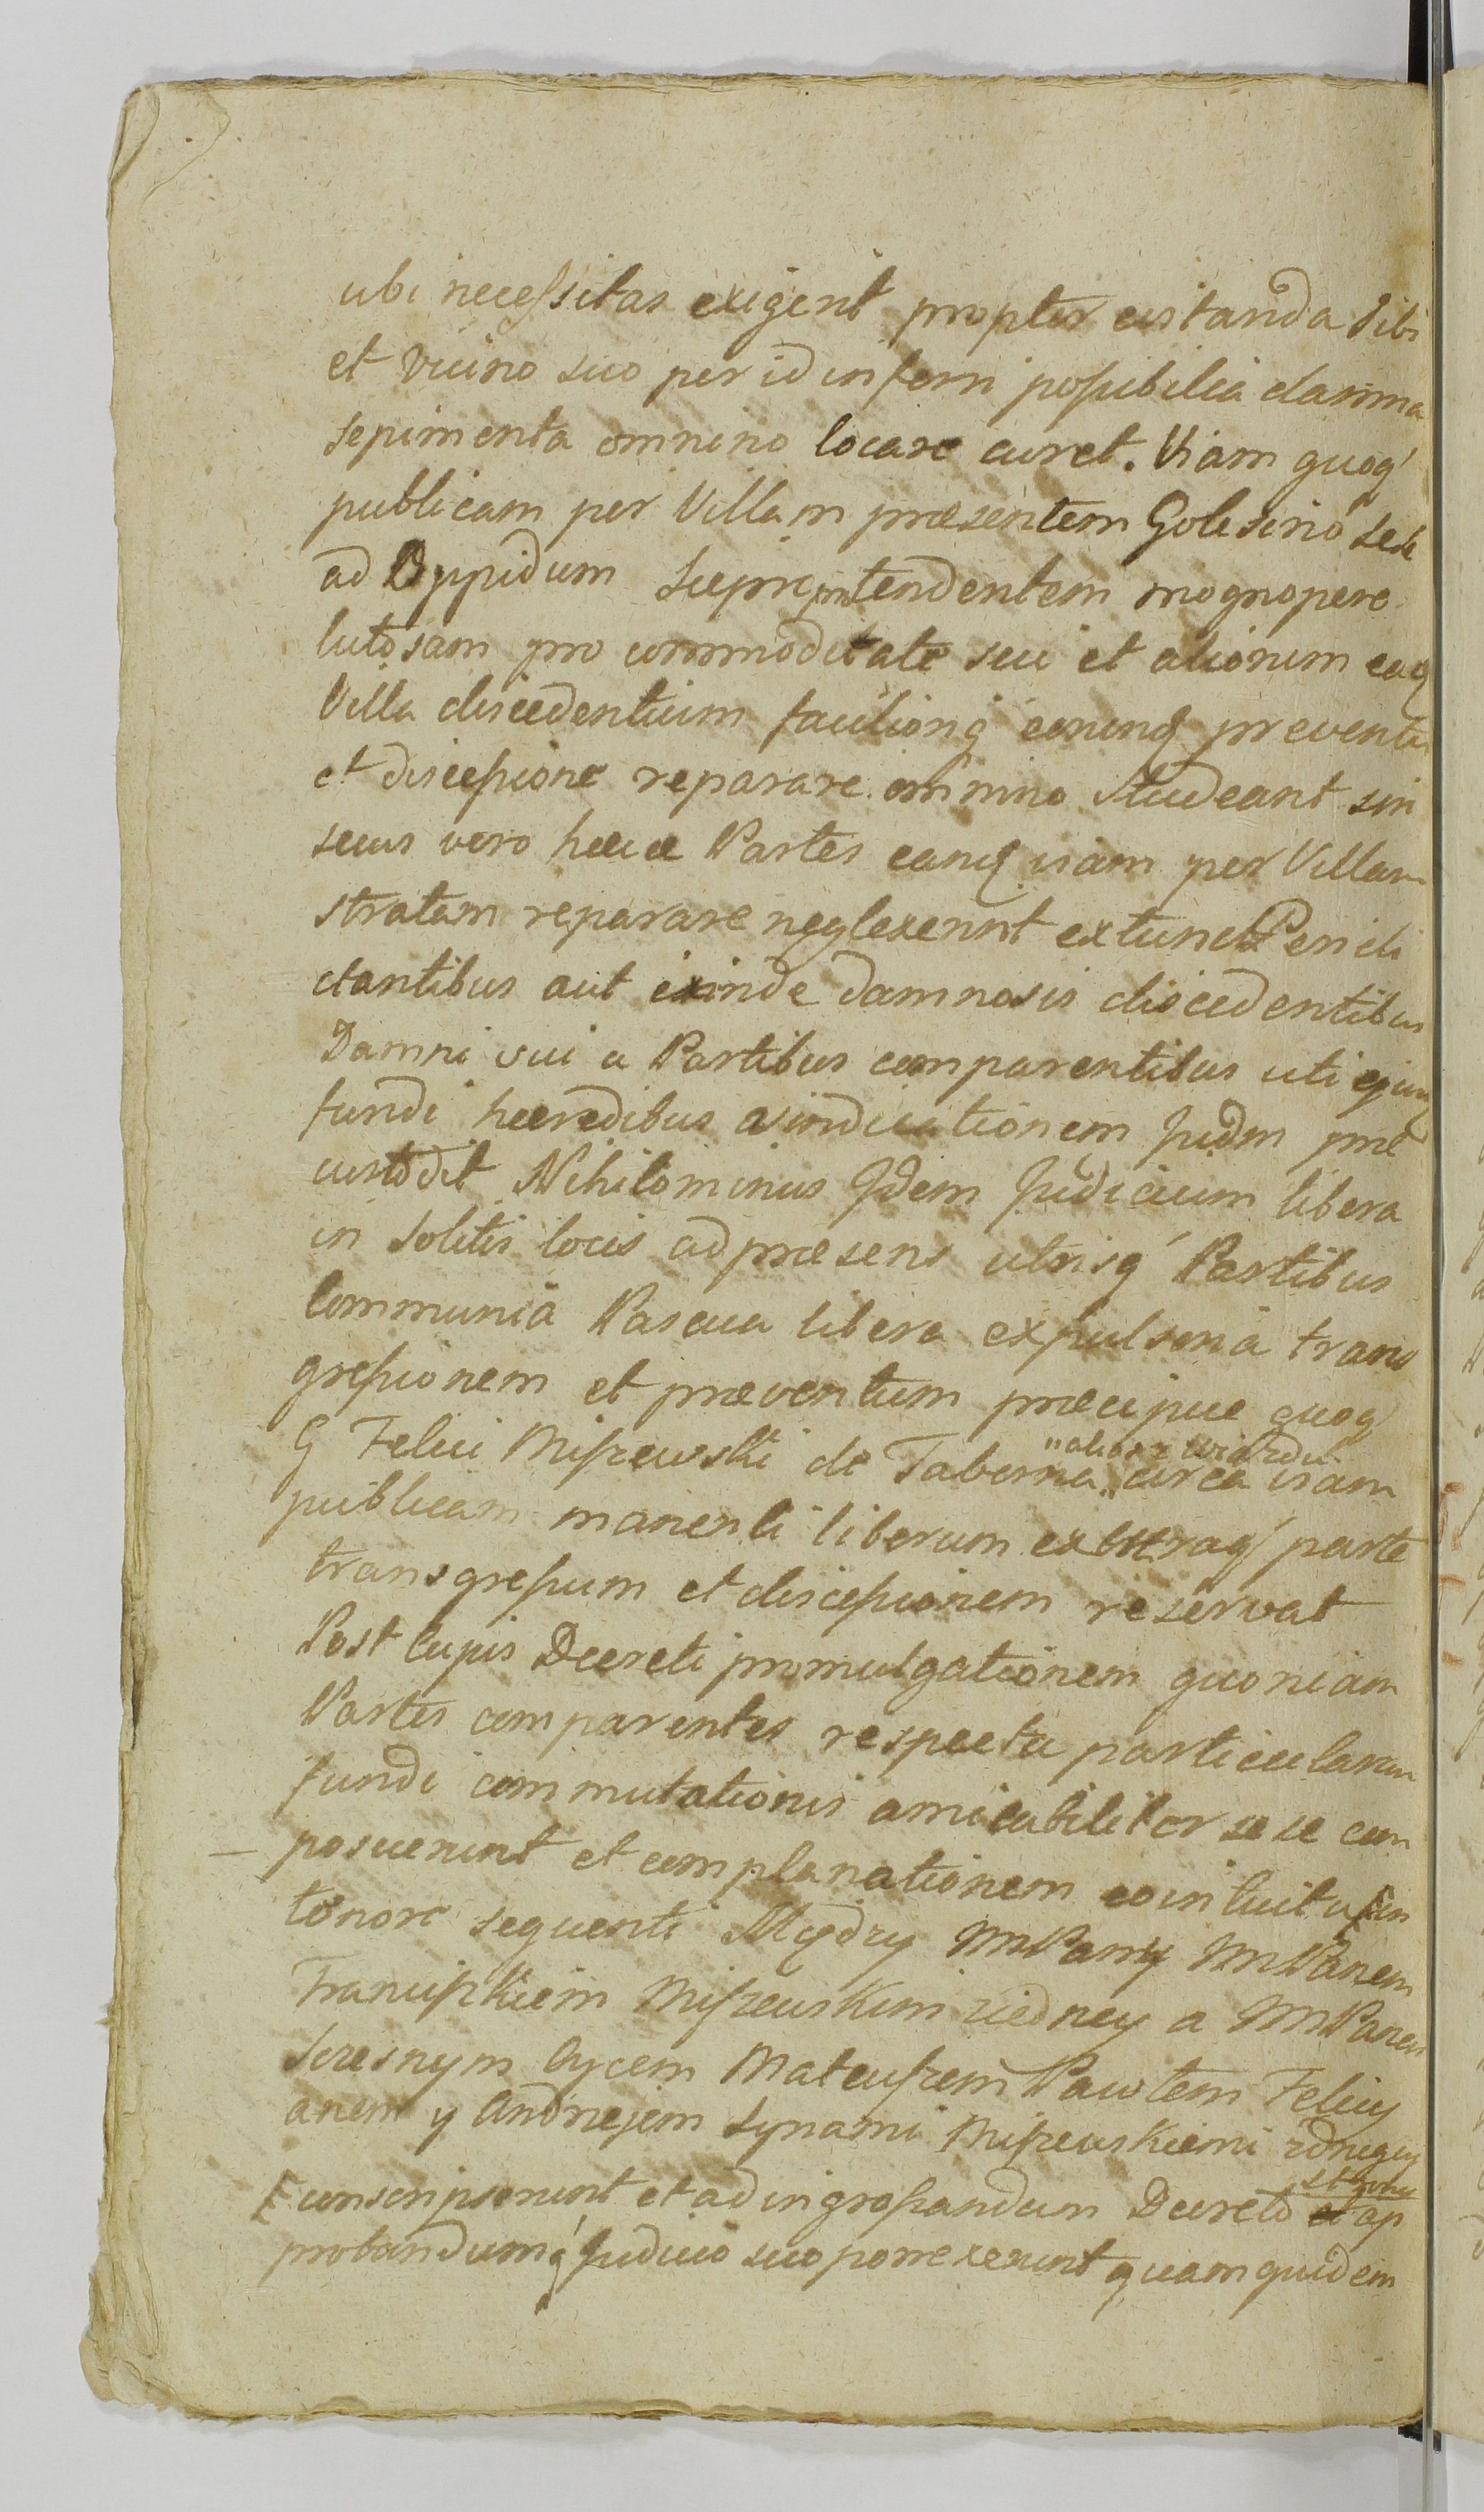 ubi necessitas exigerit propter evitanda sibi
et vicino suo per id inferri possibilia damna
sepimenta omnino locare curet. Viam quoq'
publicam per Villam præsentem Golesino sese
ad Oppidum Sierpc tendentem magnopere
lutosam pro commoditate sui et aliorum eaq
Villa discedentium facilioriq' eorumq preventu
et discessione reparare omnino studeant sin
secus vero hæcce Partes eamq viam per Villam
stratam reparare neglexerint extunc Pericli
ctantibus aut exinde damnosis discedentibus
Damni sui a Partibus comparentibus uti ejusq
fundi hæredibus vindicationem Judm præ
custodit Nihilominus Idem Judicium libera
in solitis locis ad præsens utrisq' Partibus
Communia Pascua libera expulsoria trans
gressionem et præventum præcipue quoq'
G Felici Miszewski de Taberna circa viam
publicam manenti liberum ex utraq' parte
transgressum et discessionem reservat
Post cujus Decreti promulgationem quoniam
Partes comparentes respectu particularum
fundi commutationis amicabiliter sese com
posuerunt et complanationem eo intuitu in
tenore sequenti Między ImPany ImPanem
Franciszkiem Miszewskim iedney a ImPanem
Szczesnym Oycem Mateuszem Pawłem Felicy
anem y Andrzejem Synami Miszewskiemi zdrugiey
strony
conscripserunt et ad ingrossandum Decreto ap
probandumq' Judicio suo porrexerunt quamquidem